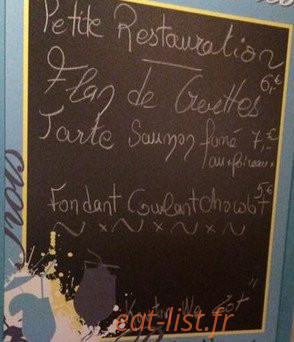 Petite Restauration
Flan de Crevettes 6,-
Tarte Saumon fumé 7,-
au poireau
5€
Fondant Coulant chocolat
~ x ~ x ~ x ~
eat-list.fr